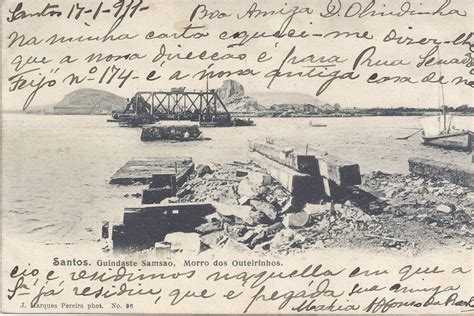 Santos 17-1-911- Boa Amiga D. Olindinha
Na minha carta esqueci-me dizer-lhe
que a nossa direcção é para Rua Senador
Feijó nº 174- e a nossa antiga casa de ne
Santos. Guindaste Samsão, Morro dos Outeirinhos.
cio, e residimos naquella em que a
Sª já residiu, que é pegada tua amiga
J. Marques Pereira phot. No. 96
Maria Affonso da